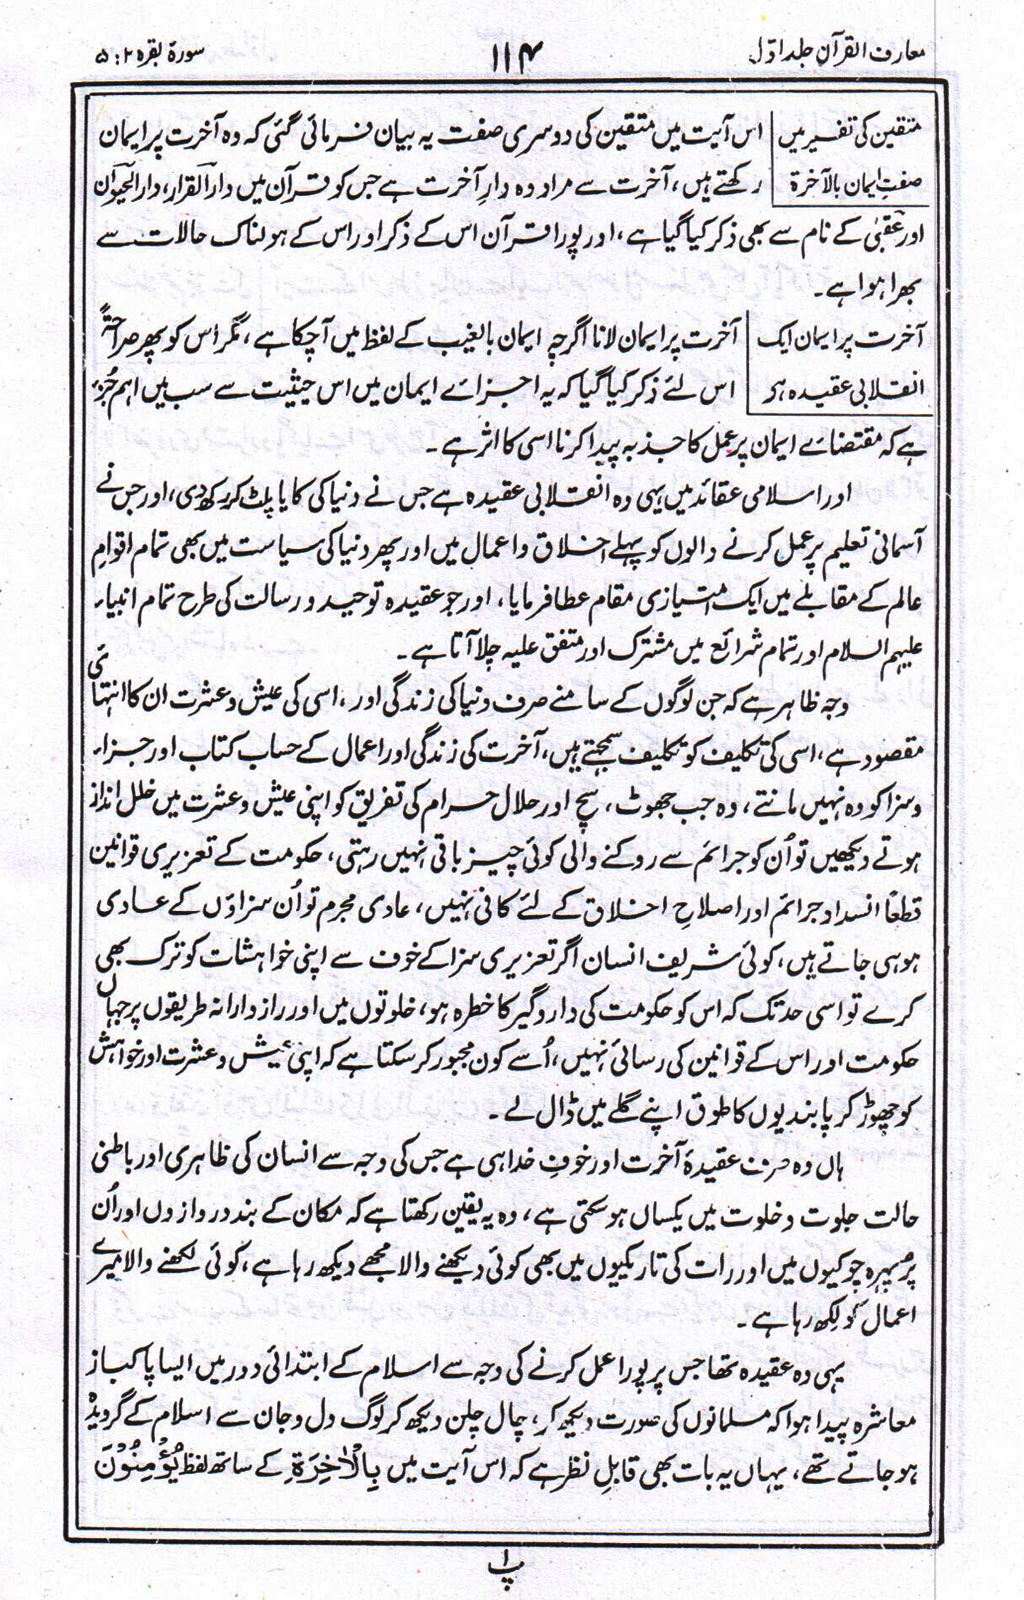 معارف القرآن جلد اوّل
۱۱۴
سورۃ بقرہ ۲ : ۵
متقین کی تفسیر میں
صفتِ ایمان بالآخرۃ
اس آیت میں متقین کی دوسری صفت یہ بیان فرمائی گئی کہ وہ آخرت پر ایمان
رکھتے ہیں، آخرت سے مراد وہ دارِ آخرت ہے جس کو قرآن میں دار القرار، دار الحیوان
اور عقبیٰ کے نام سے بھی ذکر کیا گیا ہے، اور پورا قرآن اس کے ذکر اور اس کے ہولناک حالات سے
بھرا ہوا ہے۔
آخرت پر ایمان ایک
انقلابی عقیدہ ہو
آخرت پر ایمان لانا اگرچہ ایمان بالغیب کے لفظ میں آچکا ہے، مگر اس کو پھر صراحۃً
اس لئے ذکر کیا گیا کہ یہ اجزائے ایمان میں اس حیثیت سے سب میں اہم جُزء
ہے کہ مقتضائے ایمان پر عمل کا جذبہ پیدا کرنا اسی کا اثر ہے۔
اور اسلامی عقائد میں یہی وہ انقلابی عقیدہ ہے جس نے دنیا کی کایا پلٹ کر رکھ دی، اور جس نے
آسمانی تعلیم پر عمل کرنے والوں کو پہلے اخلاق و اعمال میں اور پھر دنیا کی سیاست میں بھی تمام اقوامِ
عالم کے مقابلے میں ایک امتیازی مقام عطا فرمایا، اور جو عقیدہ توحید و رسالت کی طرح تمام انبیاء
علیہم السلام اور تمام شرائع میں مشترک اور متفق علیہ چلا آتا ہے۔
وجہ ظاہر ہے کہ جن لوگوں کے سامنے صرف دنیا کی زندگی اور، اسی کی عیش و عشرت ان کا انتہائی
مقصود ہے، اسی کی تکلیف کو تکلیف سمجھتے ہیں، آخرت کی زندگی اور اعمال کے حساب کتاب اور جزاء
و سزا کو وہ نہیں مانتے، وہ جب جھوٹ، سچ اور حلال حرام کی تفریق کو اپنی عیش و عشرت میں خلل انداز
ہوتے دیکھیں تو اُن کو جرائم سے روکنے والی کوئی چیز باقی نہیں رہتی، حکومت کے تعزیری قوانین
قطعاً انسدادِ جرائم اور اصلاحِ اخلاق کے لئے کافی نہیں، عادی مجرم تو اُن سزاؤں کے عادی
ہو ہی جاتے ہیں، کوئی شریف انسان اگر تعزیری سزا کے خوف سے اپنی خواہشات کو ترک بھی
کرے تو اسی حد تک کہ اس کو حکومت کی دار و گیر کا خطرہ ہو، خلوتوں میں اور رازدارانہ طریقوں پر جہاں
حکومت اور اس کے قوانین کی رسائی نہیں، اُسے کون مجبور کر سکتا ہے کہ اپنی عیش و عشرت اور خواہش
کو چھوڑ کر پابندیوں کا طوق اپنے گلے میں ڈال لے۔
ہاں وہ صرف عقیدۂ آخرت اور خوفِ خدا ہی ہے جس کی وجہ سے انسان کی ظاہری اور باطنی
حالت جلوت و خلوت میں یکساں ہو سکتی ہے، وہ یہ یقین رکھتا ہے کہ مکان کے بند دروازوں اور اُن
پر پہرہ چوکیوں میں اور رات کی تاریکیوں میں بھی کوئی دیکھنے والا مجھے دیکھ رہا ہے، کوئی لکھنے والا میرے
اعمال کو لکھ رہا ہے۔
یہی وہ عقیدہ تھا جس پر پورا عمل کرنے کی وجہ سے اسلام کے ابتدائی دور میں ایسا پاکباز
معاشرہ پیدا ہوا کہ مسلمانوں کی صورت دیکھ کر، چال چلن دیکھ کر لوگ دل و جان سے اسلام کے گرویدہ
ہو جاتے تھے، یہاں یہ بات بھی قابلِ نظر ہے کہ اس آیت میں بِالْاٰخِرَةِ کے ساتھ لفظ یُؤْمِنُوْنَ